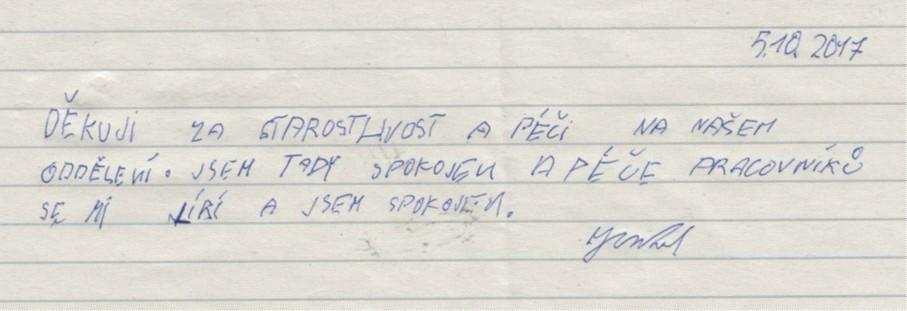 5.10. 2017
DĚKUJI ZA STAROSTLIVOST A PÉČI NA NAŠEM
ODDĚLENÍ. JSEM TADY SPOKOJEN A PÉČE PRACOVNÍKŮ
SE MÍ LÍBÍ A JSEM SPOKOJEN.